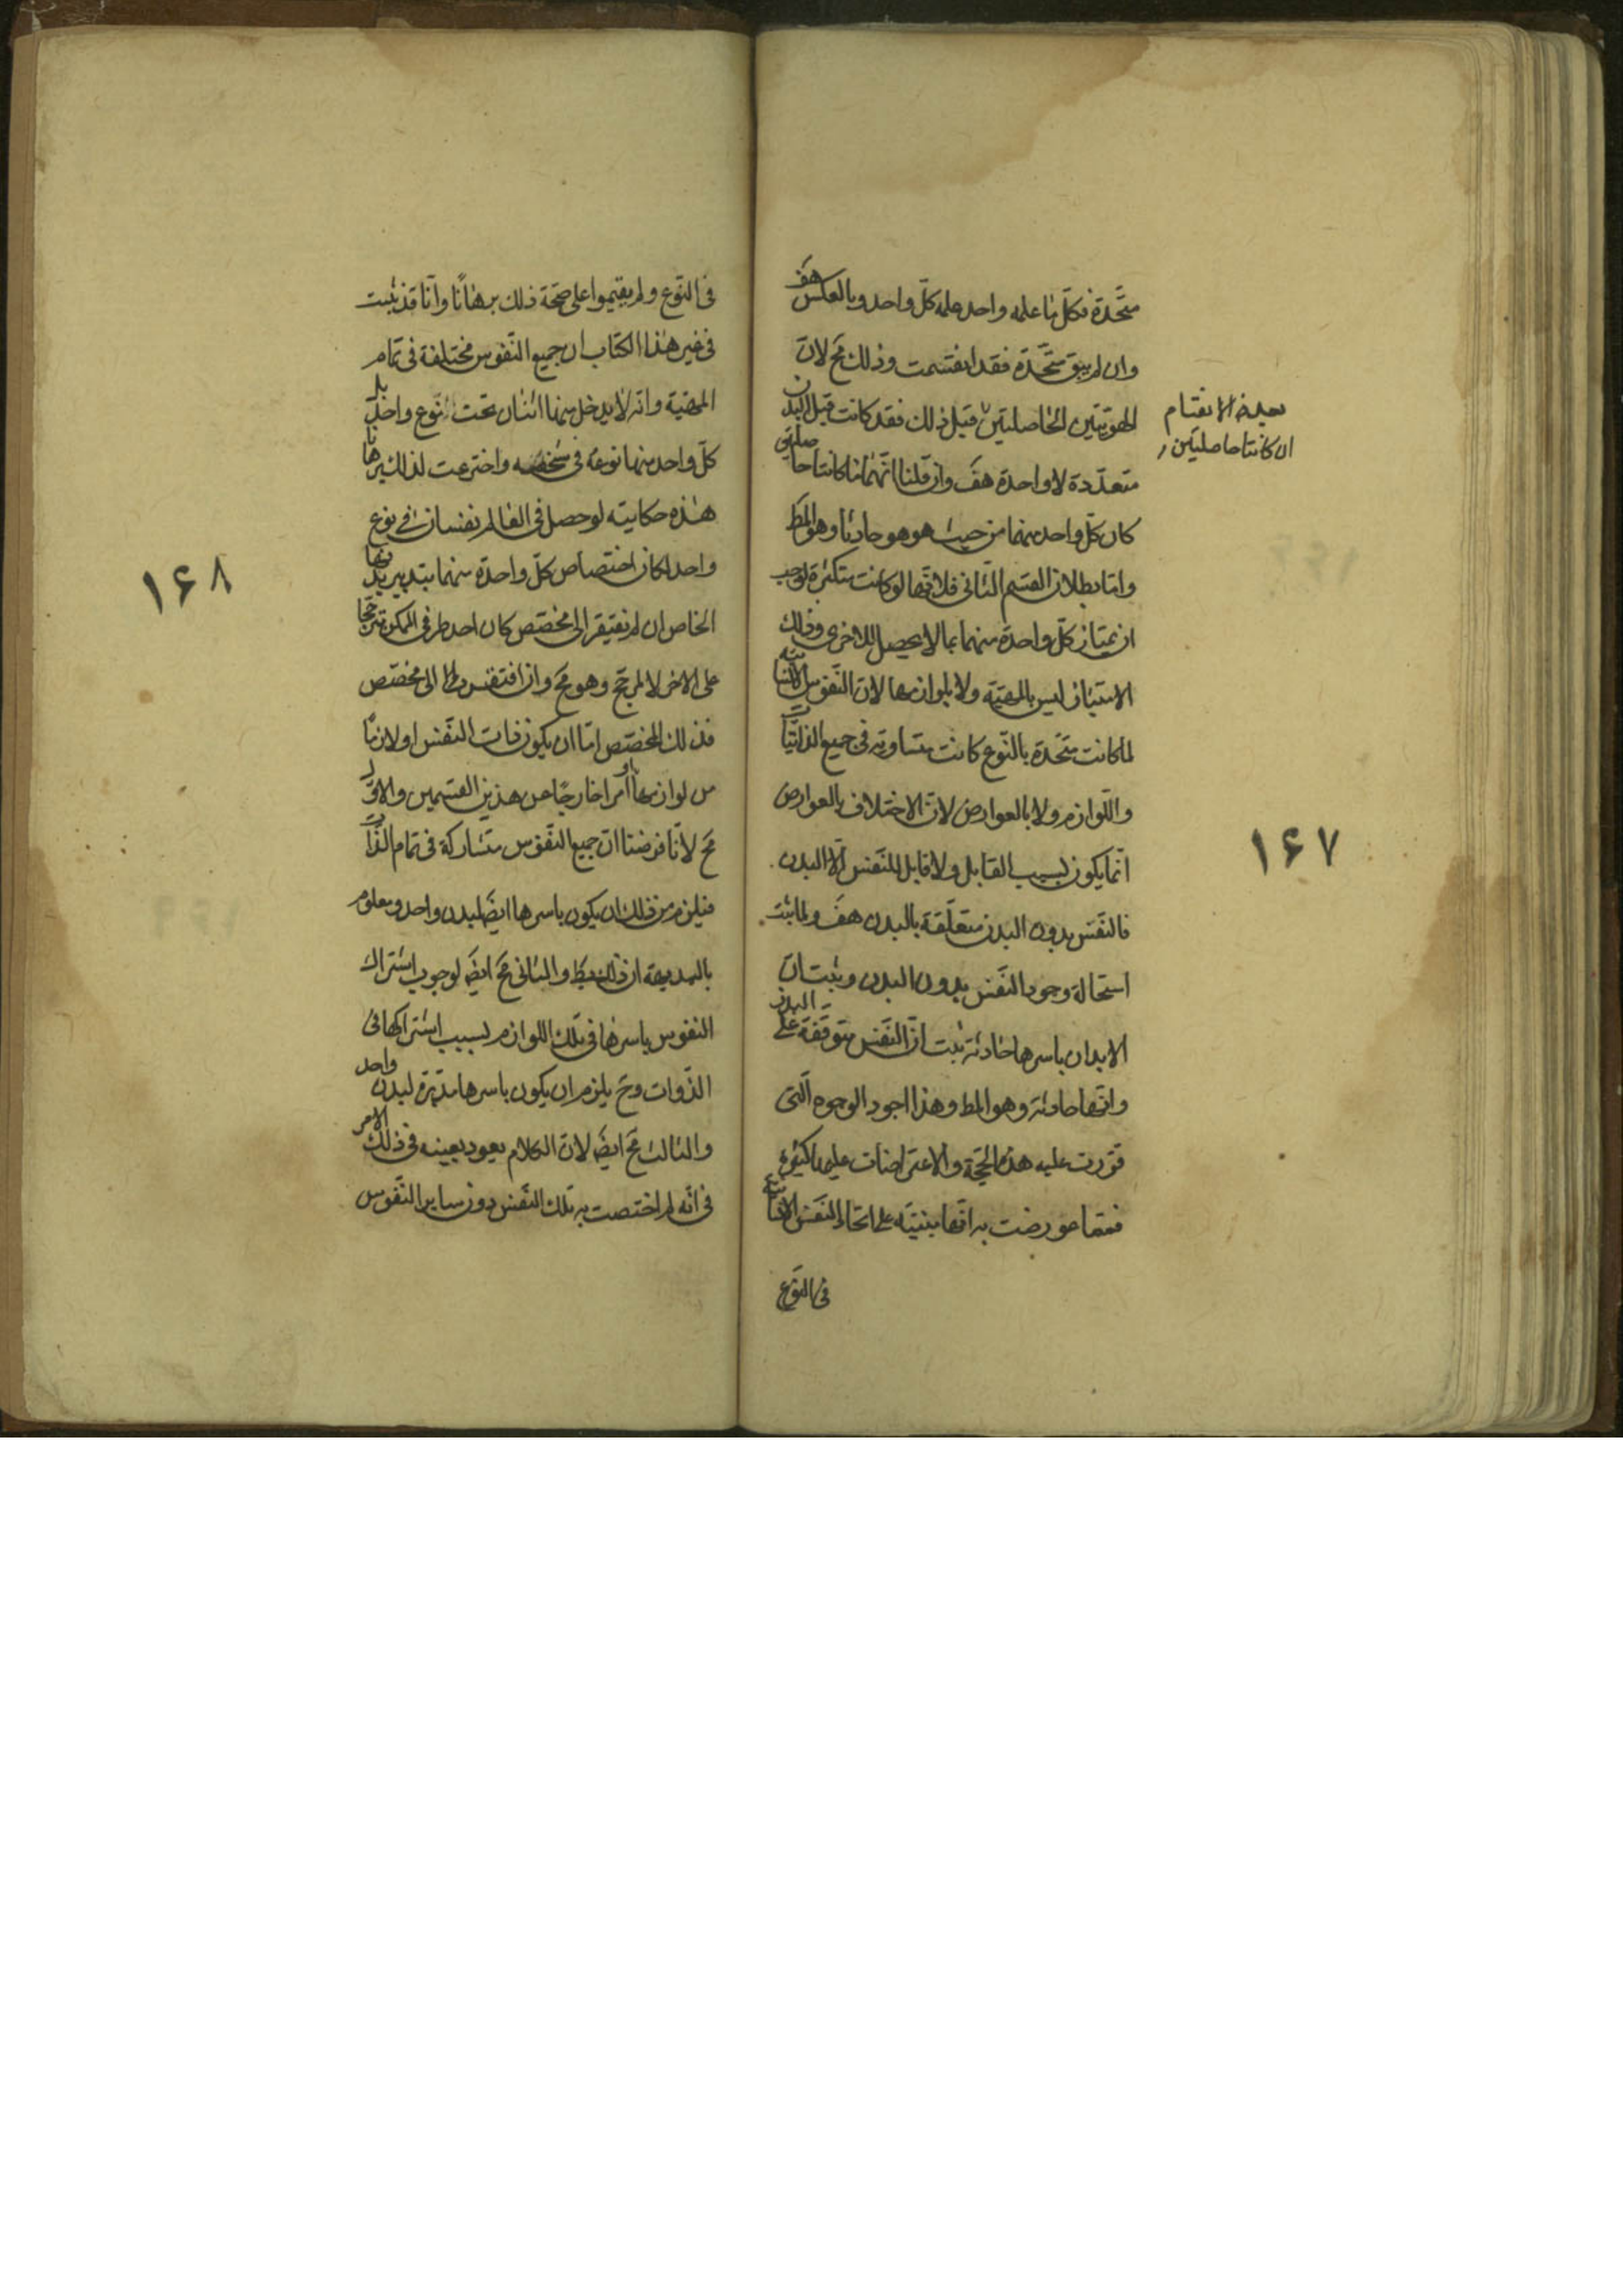 متّحدة فكلّ ما علمه واحد علمه كلّ واحد وبالعكس هف
وان لم يبق متّحدة فقد انقسمت وذلك مح لانّ
الهويّتين الحاصلتين قبل ذلك فقد كانت قبل البدن
متعدّدة لا واحدة هف وان قلنا انّهما ما كانتا حاصلتين
كان كلّ واحد منهما من حيث هو هو حادثا وهو المط
وامّا بطلان القسم الثّانى فلانّها لو كانت متكثرة لوجب
ان يمتاز كلّ واحدة منهما بما لا يحصل للاخرى وذلك
الامتياز ليس بالمهيّة ولا بلوازمها لانّ النّفوس الانسانيّة
لمّا كانت متّحدة بالنّوع كانت متساوية فى جميع الذّاتيّات
واللّوازم ولا بالعوارض لانّ الاختلاف بالعوارض
انّما يكون بسبب القابل ولا قابل للنّفس الّا البدن
فالنّفس بدون البدن متعلّقة بالبدن هف ولما ثبت
استحالة وجود النّفس بدون البدن وثبت انّ
الابدان باسرها حادثة ثبت انّ النّفس متوقّفة على البدن
وانّها حادثة وهو المط وهذا اجود الوجوه الّتى
قرّرت عليه هذه الحجّة والاعتراضات عليها كثيرة
فممّا عورضت به انّها مبنيّة على اتحاد النّفس الانسانيّة
فى النوع
بعد هذا الانقسام
ان كانتا حاصلتين
١۶٧
فى النّوع ولم يقيموا على صحّة ذلك برهانًا وانّا قد ثبت
فى غير هذا الكتاب ان جميع النّفوس مختلفة فى تمام
المهيّة وانّه لا يدخل منها اثنان تحت نوع واحد بل
كلّ واحد منها نوعه فى شخصه واخترعت لذلك برهانا
هذه حكايته لو حصل فى العالم نفسان فى نوع
واحد لكان اختصاص كلّ واحدة منهما بتدبير بدنها
الخاص ان لم يفتقر الى مخصّص كان احد طرفى الممكن مترجّحا
على الاخر لا لمرجّح وهو مح وان افتقر الى مخصّص
فذلك المخصّص امّا ان يكون ذات النّفس او لازمًا
من لوازمها او امرا خارجًا عن هذين القسمين والاوّل
مح لانّا فرضنا انّ جميع النّفوس متشاركة فى تمام الذّات
فيلزم من ذلك ان يكون باسرها ايضَ لبدن واحد ومعلوم
بالبديهة ان ذلك بط والثانى مح ايضَ لوجوب اشتراك
النفوس باسرها فى تلك اللوازم بسبب اشتراكها فى
الذّوات وح يلزم ان يكون باسرها مدبّرة لبدن واحد
والثالث مح ايضَ لانّ الكلام يعود بعينه فى ذلك الامر
فى انّه لم اختصت به تلك النّفس دون ساير النّفوس
١۶٨